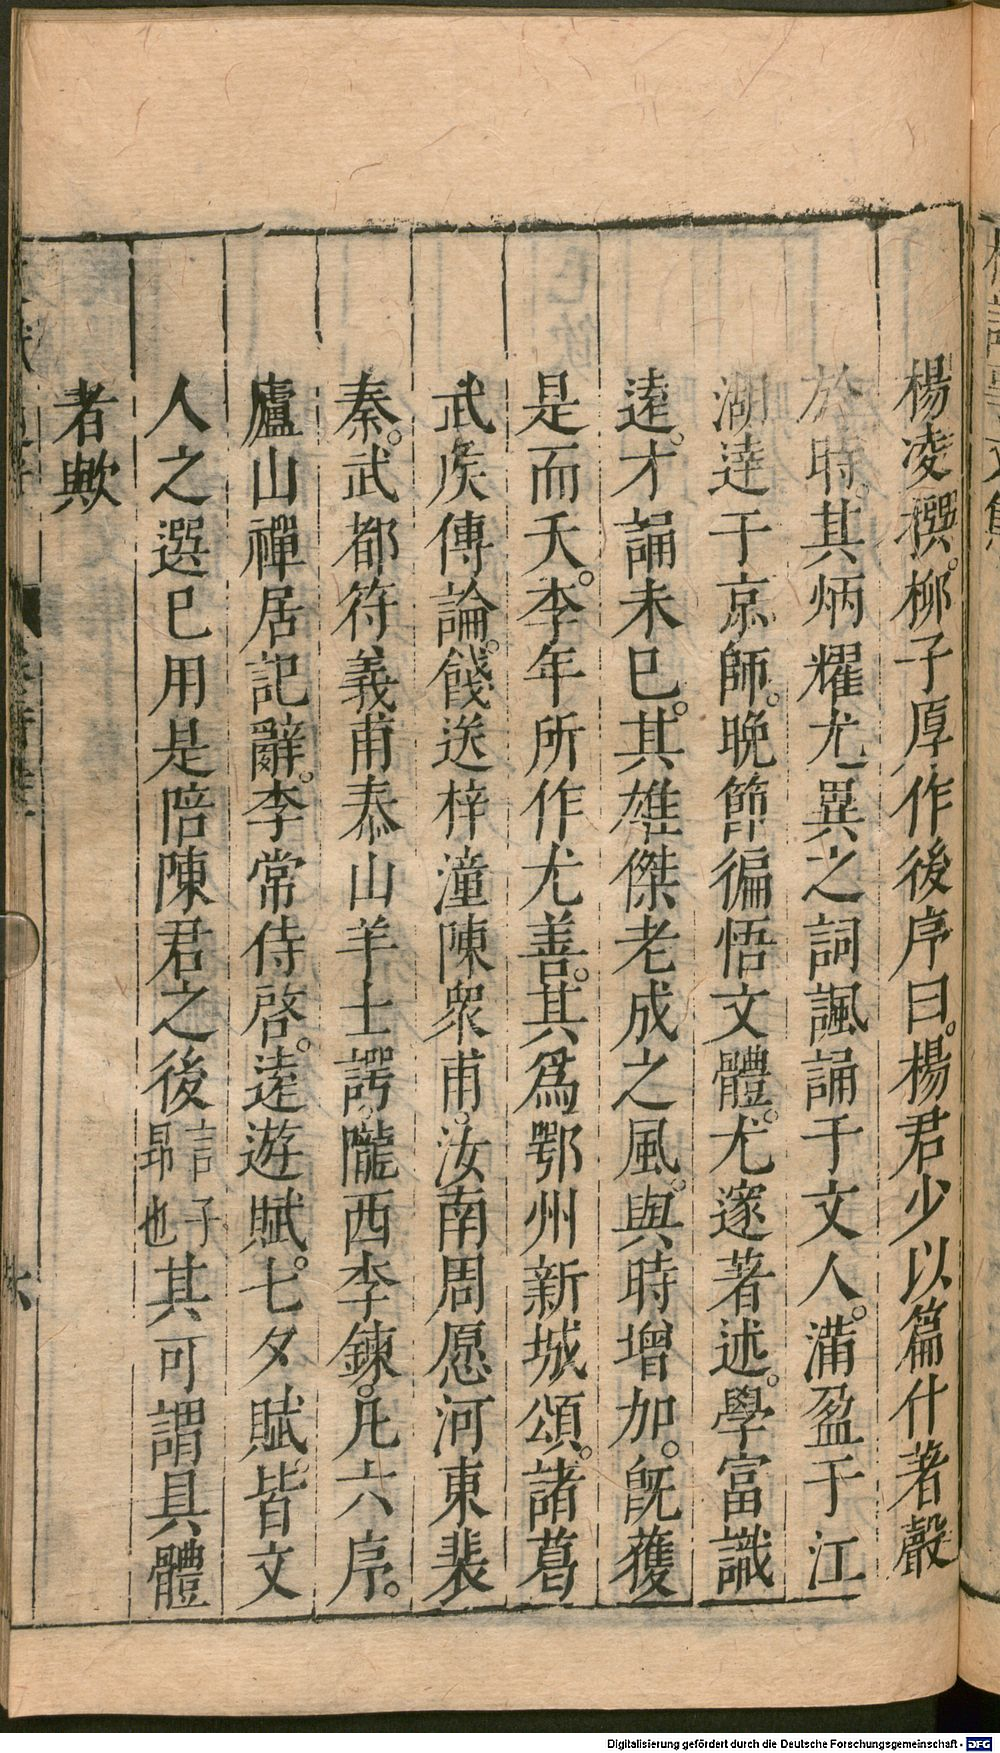 楊凌撰。柳子厚作後序曰。楊君少以篇什著聲
於時。其炳耀尤異之詞諷誦于文人。滿盈于江
湖達于京師。晚節徧悟文體。尤邃著述。學富識
遠。才誦未已。其雄傑老成之風。與時增加。旣獲
是而夭。李年所作尤善。其爲鄂州新城頌。諸葛
武矦傳論。餞送梓潼陳衆甫。汝南周愿河東裴
秦。武都符義甫泰山羊士諤。隴西李鍊。凡六序。
廬山禪居記辭。李常侍啓。遠遊賦。七夕賦。皆文
人之選已用是陪陳君之後言子昂也其可謂具體
者歟
Digitalisierung gefördert durch die Deutsche Forschungsgemeinschaft - DFG